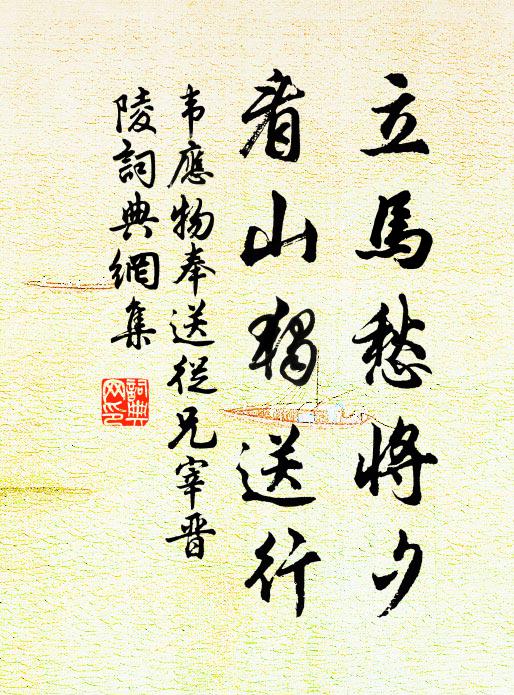 立馬愁將夕
看山獨送行
韦應物奉送從兄宰晋
陵詞典網集
詞典
网印